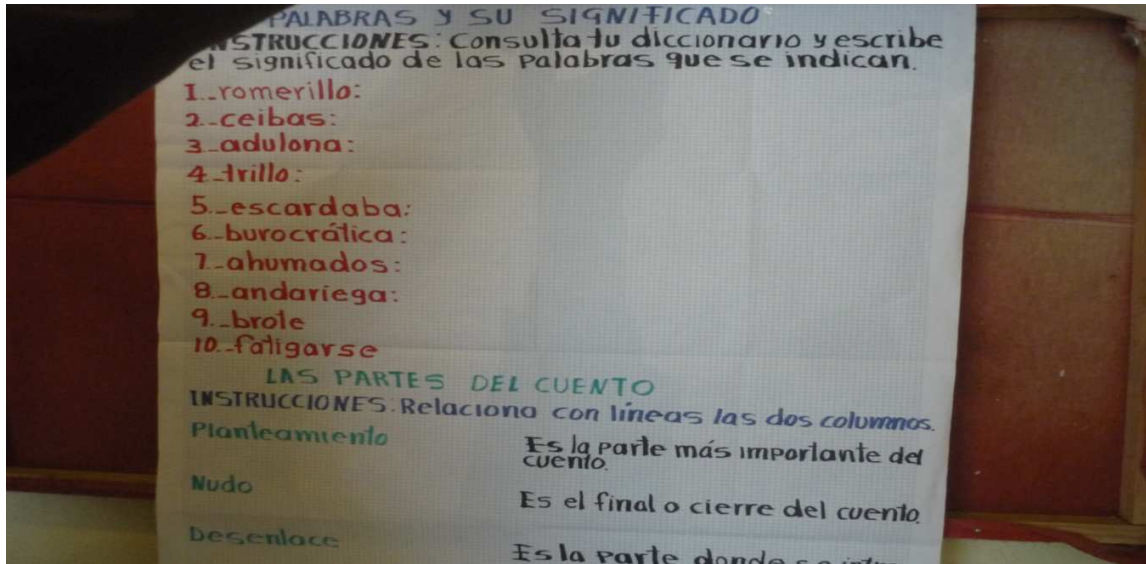 PALABRAS Y SU SIGNIFICADO
INSTRUCCIONES: Consulta tu diccionario y escribe
el significado de las palabras que se indican.
1.-romerillo:
2.-ceibas:
3.-adulona:
4.-trillo:
5.-escardaba:
6.-burocrática:
7.-ahumados:
8.-andariega:
9.-brote
10.-fatigarse
LAS PARTES DEL CUENTO
INSTRUCCIONES: Relaciona con líneas las dos columnas.
Planteamiento
Es la parte más importante del
cuento.
Nudo
Es el final o cierre del cuento.
Desenlace
Es la parte donde se